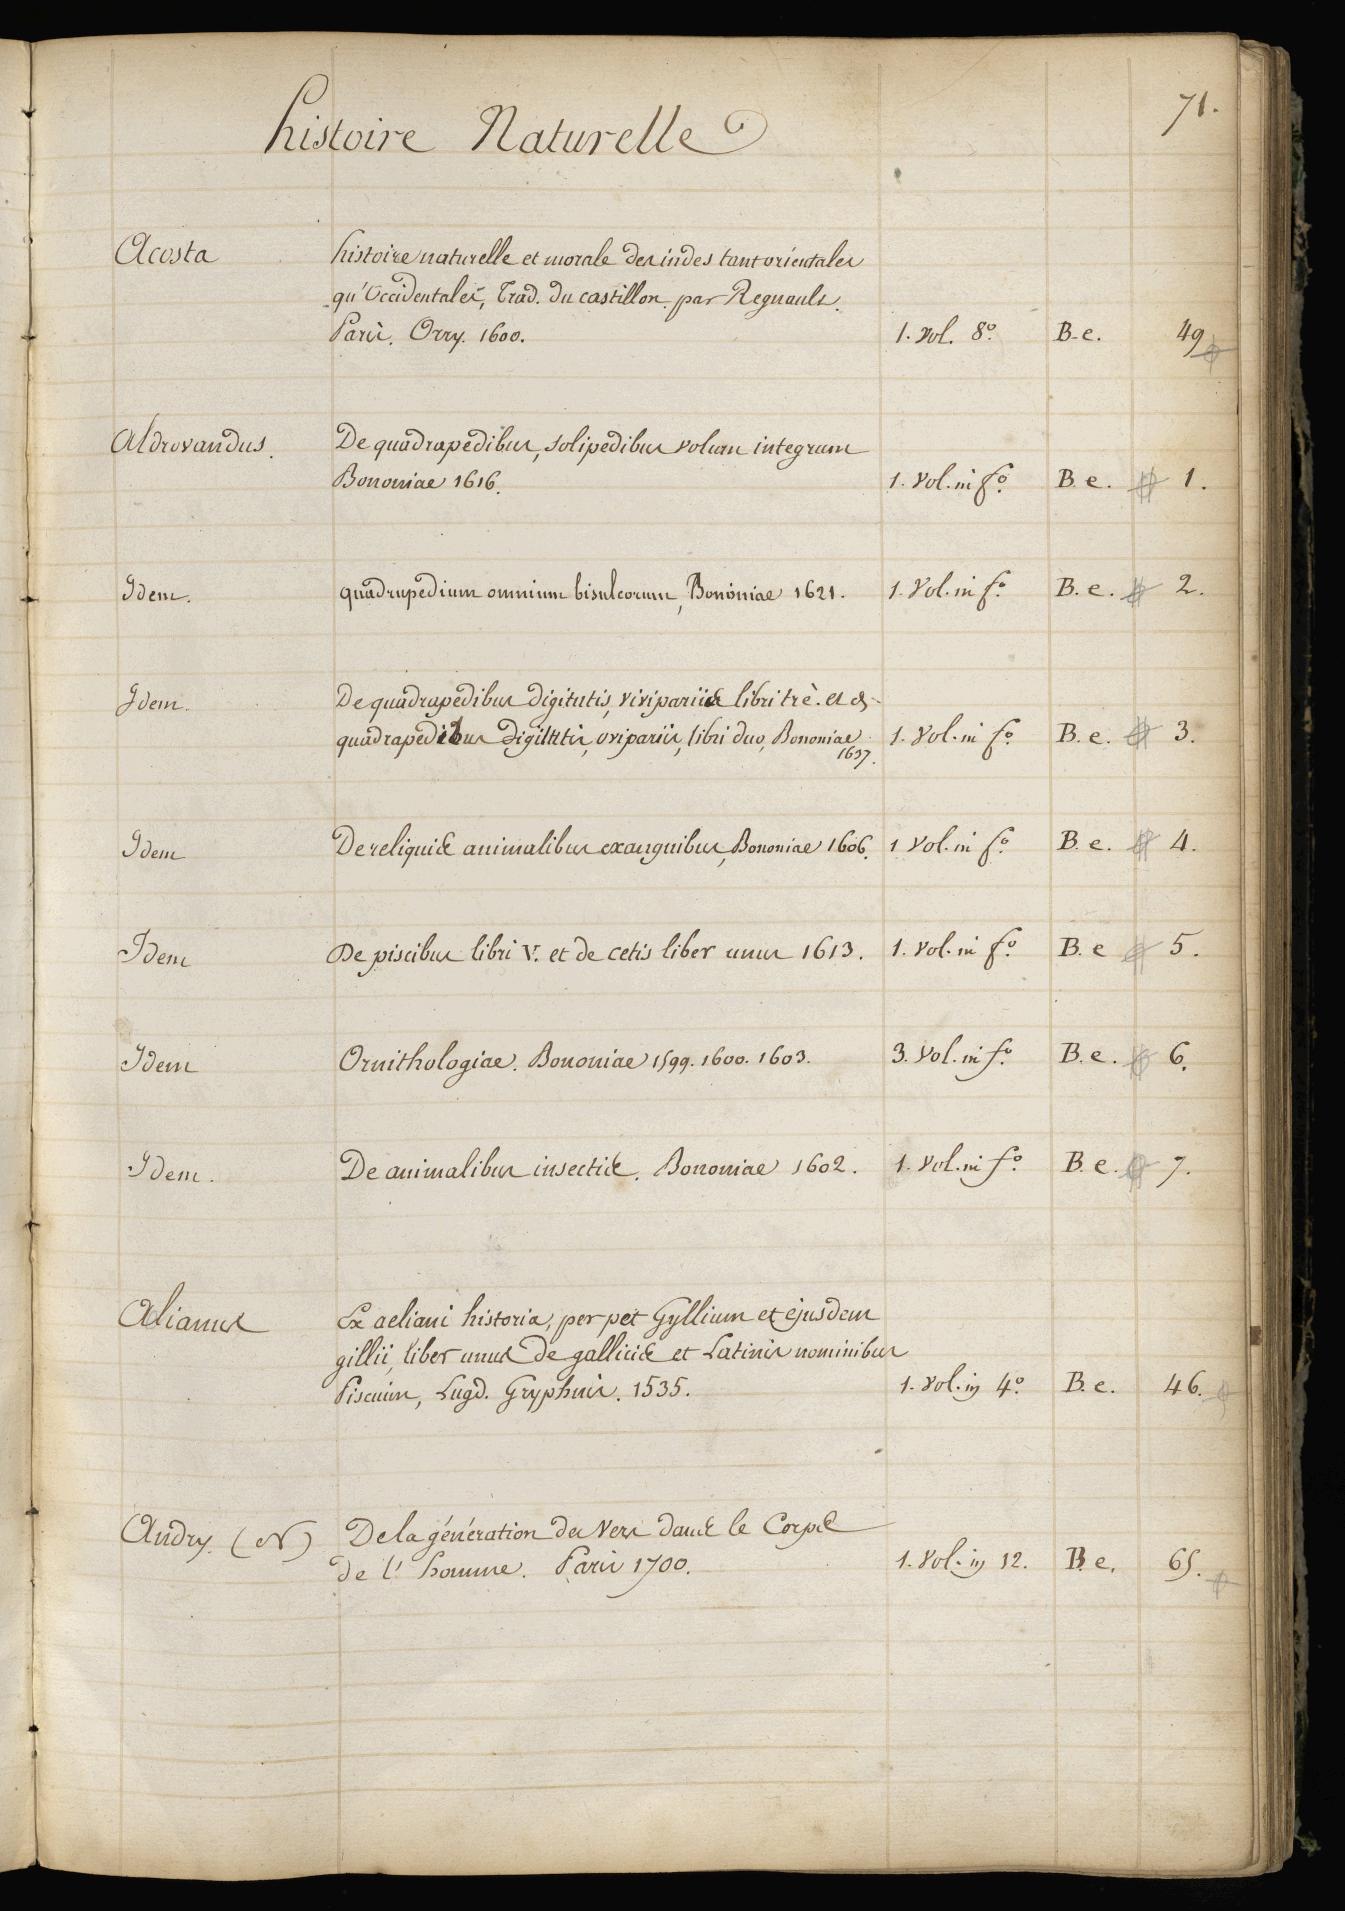 71.
histoire Naturelle
Acosta histoire naturelle et morale des indes tant orientales
qu'Occidentales, Trad. du castillon par Regnault.
Paris. Orry. 1600. 1. Vol. 8.º B.e. 49
Aldrovandus. De quadrapedibus, solipedibus volum integrum
Bononiae 1616. 1. Vol. in fº. B.e. 1.
Idem. quadrupedium omnium bisulcorum, Bononiae 1621. 1. Vol. in fº. B.e. 2.
Idem. De quadrapedibus digitutis, vivipariis libri trè. et de
quadrapedibus digittitis, ovipariis, libri duo, Bononiae
1637. 1. Vol. in fº. B.e. 3.
Idem De reliquis animalibus exanguibus, Bononiae 1606. 1 Vol. in fº. B.e. 4.
Idem De piscibus libri V. et de cetis liber unus 1613. 1. Vol. in fº. B.e 5.
Idem Ornithologiae. Bononiae 1599. 1600. 1603. 3. Vol. in fº. B.e. 6.
Idem. De animalibus insectis. Bononiae 1602. 1. Vol. in fº. B.e. 7.
Alianus Ex aeliani historia, per pet Gyllium et ejusdem
gillii, liber unus de gallicis et Latinis nominibus
Piscuim, Lugd. Gryphuis. 1535. 1. Vol. in 4º. B.e. 46.
Andry. (N) De la génération des Vers dans le Corps
de l'homme. Paris 1700. 1. Vol. in 12. B.e. 65.